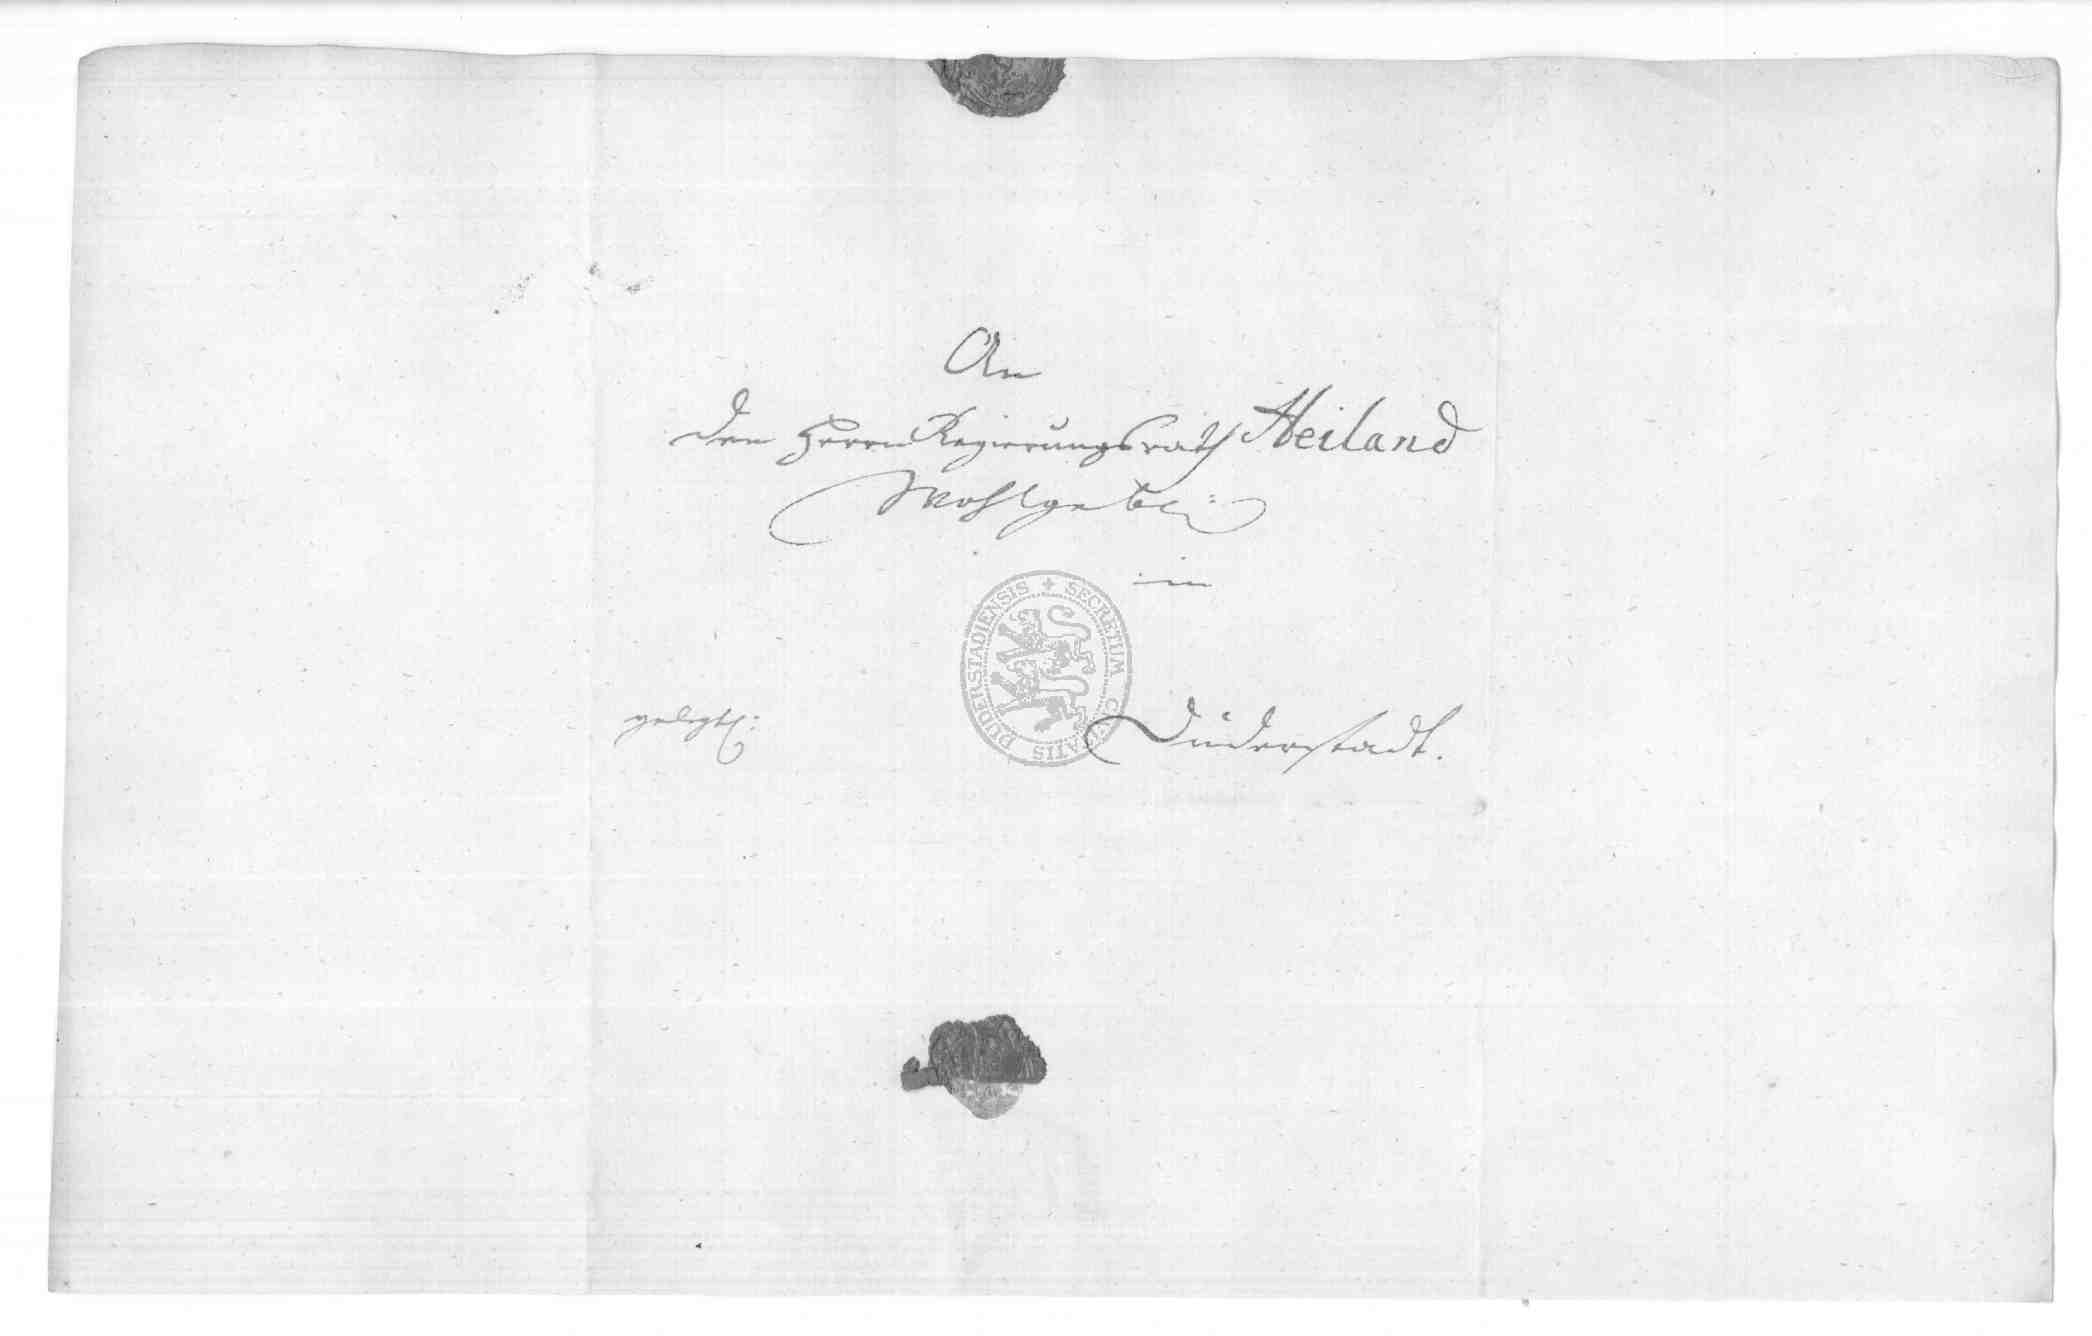 An
den Herrn Regierungsrath Heiland
Wohlgeb:
in
SECRETUM CIVITATIS DUDERSTADIENSIS
Duderstadt.